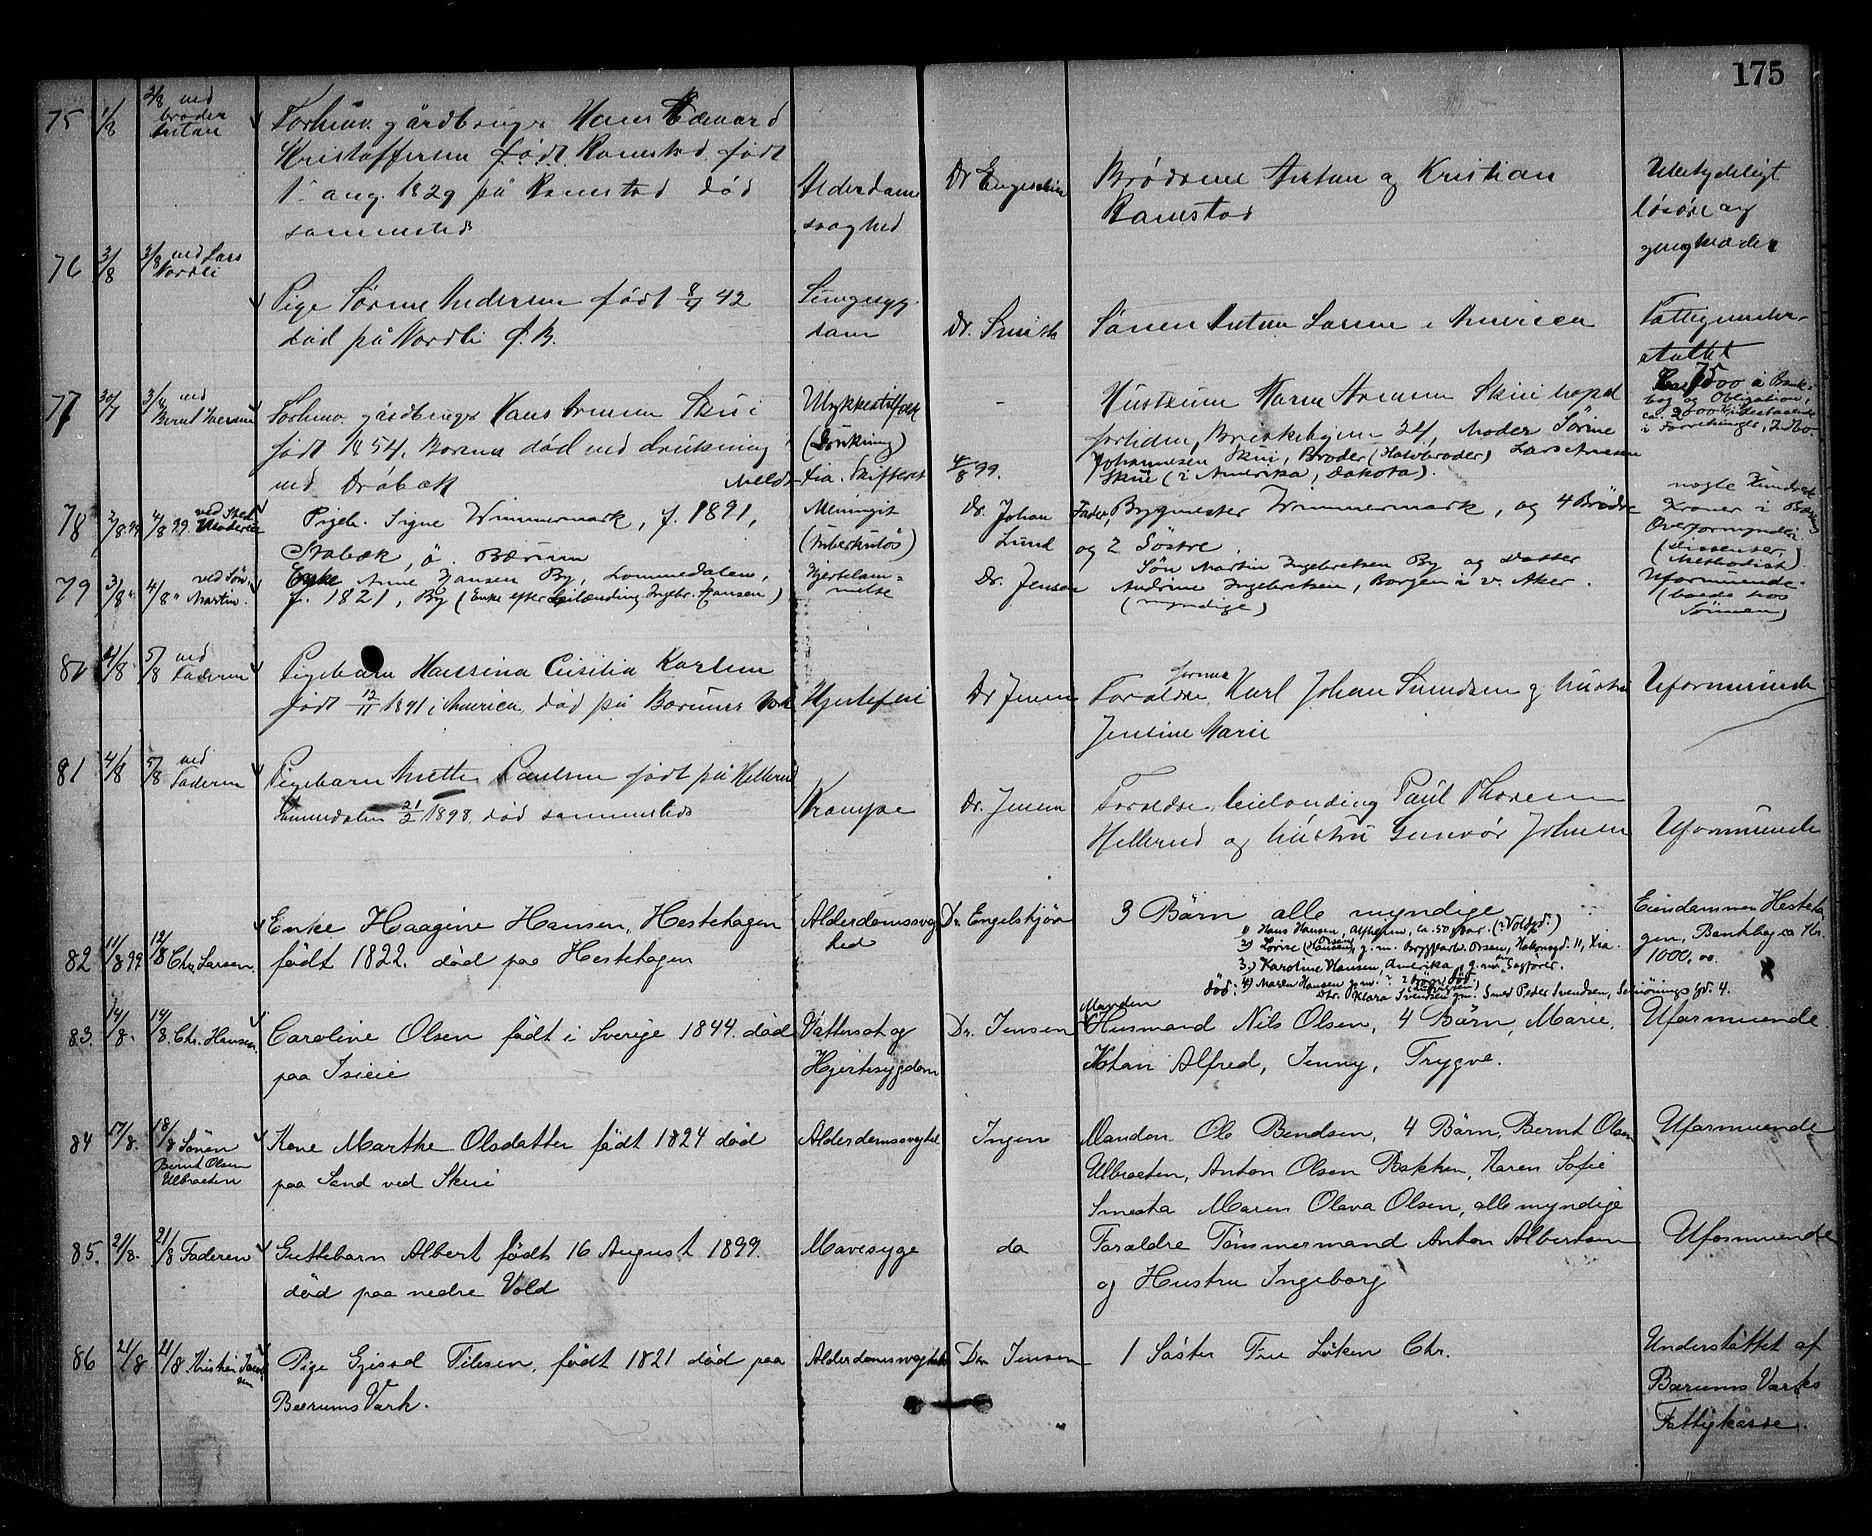 175
75 1/8 2/8 ved broder Antan
Forhenv. gårdbruger Hans Edvard
Kristoffersen født Ramstad født
1. aug. 1829 på Ramstad død
sammesteds
Alderdoms
svaghed
Dr Engelschiøn
Brødrene Antan og Kristian
Ramstad
Ubetydeligt
løsøre og
gangklæder
76 3/8 3/8 ved Lars Nordli
Pige Sørine Andersen født 8/4 42
død på Nordli Ø. B.
Lungesyg
dom
Dr. Smith
Sønen Antan Larsen i America
Fattigunder-
støttet
77 30/7 3/8 ved Bernt Iversen
Forhenv. gårdbruger Hans Arnesen Skui
født 1854, Bærum død ved drukning
ved Drøbak
Meldt
Ulykkestilfælde
(Drukning)
Kria. Skifteret
-
4/8 99.
Hustruen Maren Arnesen Skui bopæl
fortiden, Briskebyen 24, Moder Sørine
Johannesen Skui, Broder (Halvbroder) Lars Arnesen
Skui (i Amerika, Dakota).
7500 i Bank-
bog og Obligation,
ca. 2000 Tilgodehavende
i Forretninger, Indbo.
78 2/8 99 4/8 99. ved Sted Moderen
Pigeb. Signe Wimmermark, f. 1891,
Stabæk, ø. Bærum
Meningit
(tuberkuløs)
Dr. Johan
Lund
Fader, Bygmester Wimmermark, og 4 Brødre
og 2 Søstre.
nogle Hundrede
Kroner i Bærums
Overformynderi
(Dissenter,
Methodist).
79 3/8 " 4/8 " ved Søn Martin.
Enke Anne Hansen By, Lommedalen,
f. 1821, By (Enke efter Leilænding Ingebr. Hansen)
Hjertelam-
melse
Dr. Jensen
Søn Martin Ingebretsen By og Datter
Andrine Ingebretsen, Borgen i v. Aker.
(myndige)
Uformuende.
(boede hos
Sønnen)
80 4/8 5/8 ved Faderen
Pigebarn Hansina Cicilia Karlsen
født 12/11 1891 i America død på Bærums Verk
Hjertefeil
Dr Jensen
Forældre Karl Johan Svendsen og hustru
Jensine Marie
Uformuende
81 4/8 5/8 ved Faderen
Pigebarn Anette Paulsen født på Hellerud
Lommedalen 21/2 1898 død sammesteds
Krampe
Dr. Jensen
Forældre leilænding Paul Thoresen
Hellerud og hustru Gunvor Johnsen
Uformuende
82 11/8 99 12/8 Chr. Larsen.
Enke Haagine Hansen, Hestehagen
født 1822. død paa Hestehagen
Alderdomssvag
hed
Dr. Engelskjøn
3 Børn alle myndige
1) Hans Hansen, Alfheim, ca. 50 Aar. (i Voldgd.)
2) Lovise (Hansen) g. m. Bryggearb. Olsen, Halvmgd. 11, Kria.
3) Karoline Hansen, Amerika, g. m. Sagfører.
død: 4) Maren Hansen g. m.
Dtr. Klara Svendsen gm. Smed Peder Svendsen, Schiønnings gd. 4.
Eiendommen Hesteha
gen, Bankbog ca Kr.
1000,00.
83. 14/8. 14/8. Chr. Hansen
Caroline Olsen født i Sverige 1844. død
paa Isieie
Vattersot og
Hjertesygdom
Dr. Jensen
Manden
Husmand Nils Olsen, 4 Børn, Marie,
Johan Alfred, Jenny, Trygve.
Uformuende.
84 17/8. 18/8 Sønen Bernt Olsen Ulbraaten
Kone Marthe Olsdatter født 1824 død
paa Sand ved Skui
Alderdomssvaghed
Ingen
Manden Ole Bendsen, 4 Børn, Bernt Olsen
Ulbraaten, Anton Olsen Bakken, Karen Sofie
Smesta Maren Olava Olsen, alle myndige
Uformuende
85. 21/8. 21/8 Faderen
Guttebarn Albert født 16 August 1899.
død paa nedre Vold
Mavesyge
do
Foraldre Tømmermand Anton Albertsen
og Hustru Ingeborg
Uformuende
86 21/8 21/8 Kristian Jacobsen
Pige Gjissel Tilesen, født 1821 død paa
Bærums Værk.
Alderdomssvaghed
Dr. Jensen
1 Søster Fru Løken Chr.
Understøttet af
Bærums Værks
Fattigkasse.